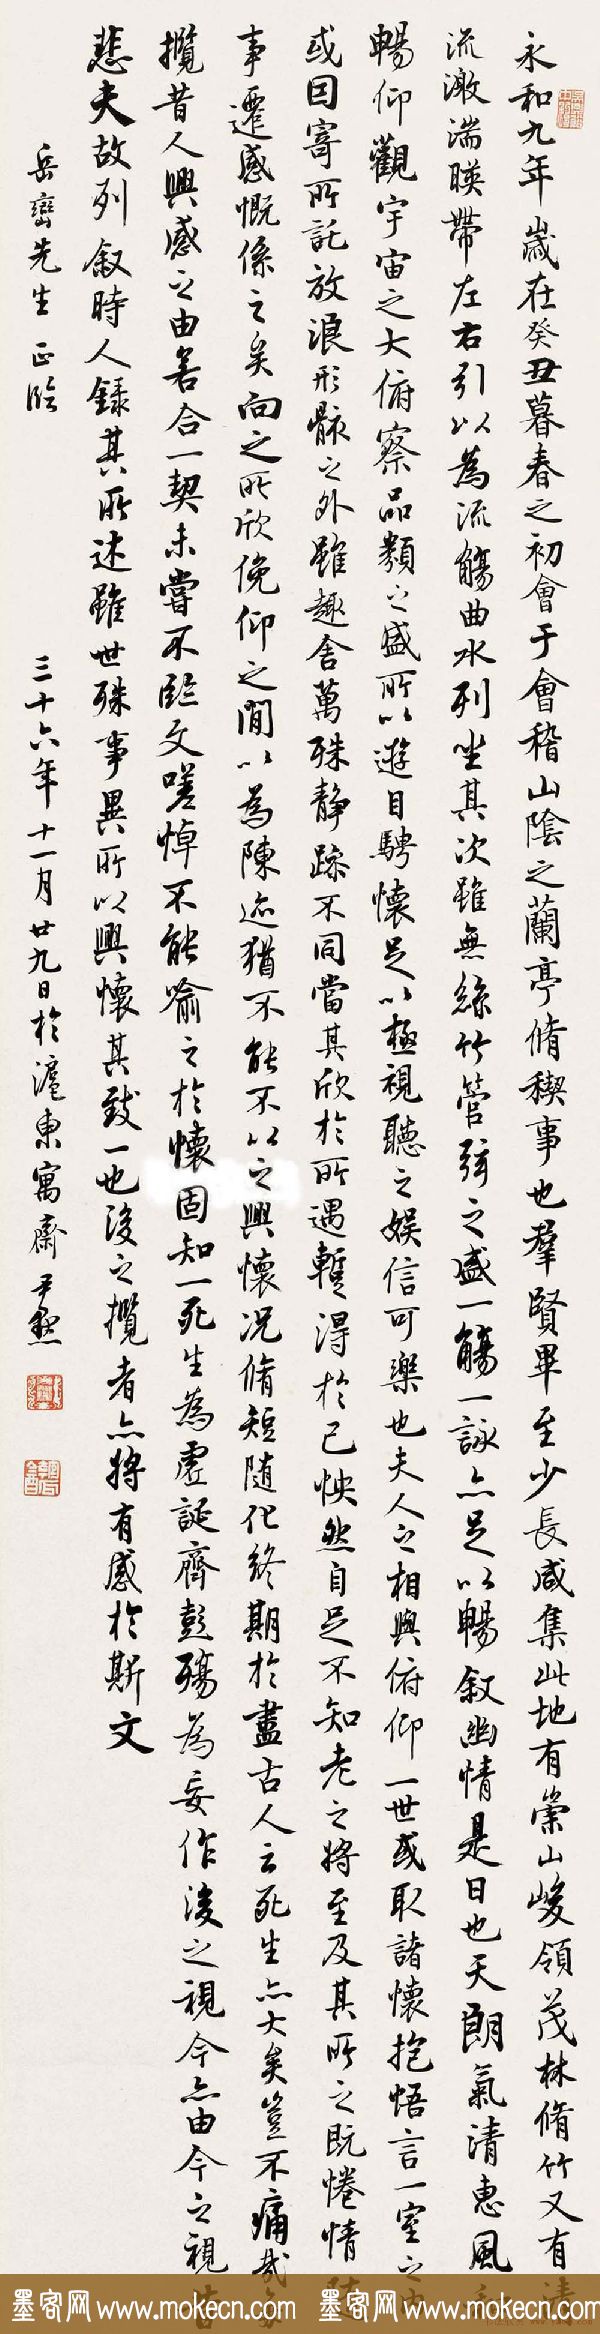 永和九年歲在癸丑暮春之初會于會稽山陰之蘭亭脩稧事也羣賢畢至少長咸集此地有崇山峻領茂林脩竹又有清
流激湍暎帶左右引以為流觴曲水列坐其次雖無絲竹管弦之盛一觴一詠亦足以暢叙幽情是日也天朗氣清惠風和
暢仰觀宇宙之大俯察品類之盛所以遊目騁懷足以極視聽之娛信可樂也夫人之相與俯仰一世或取諸懷抱悟言一室之內
或因寄所託放浪形骸之外雖趣舍萬殊静躁不同當其欣於所遇暫得於己怏然自足不知老之將至及其所之既惓情隨
事遷感慨係之矣向之所欣俛仰之間以為陳迹猶不能不以之興懷况脩短随化終期於盡古人云死生亦大矣豈不痛哉每
攬昔人興感之由若合一契未嘗不臨文嗟悼不能喻之於懷固知一死生為虛誕齊彭殤為妄作後之視今亦由今之視昔
悲夫故列叙時人錄其所述雖世殊事異所以興懷其致一也後之攬者亦將有感於斯文
岳巒先生正臨
三十六年十一月廿九日於滬東寓齋尹默
墨客网 www.mokecn.com 墨客网 www.mokecn.com